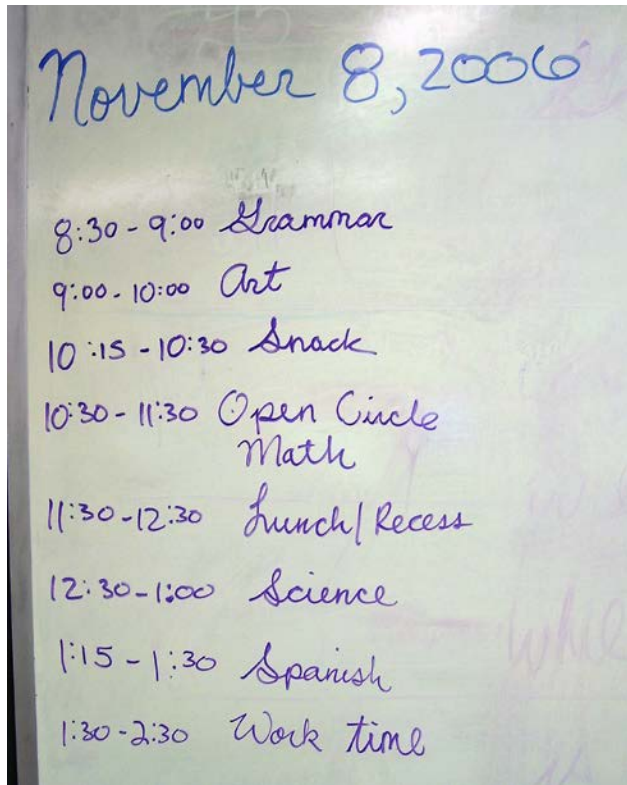 November 8, 2006
8:30 - 9:00 Grammar
9:00 - 10:00 Art
10:15 - 10:30 Snack
10:30 - 11:30 Open Circle
Math
11:30 - 12:30 Lunch/Recess
12:30 - 1:00 Science
1:15 - 1:30 Spanish
1:30 - 2:30 Work time